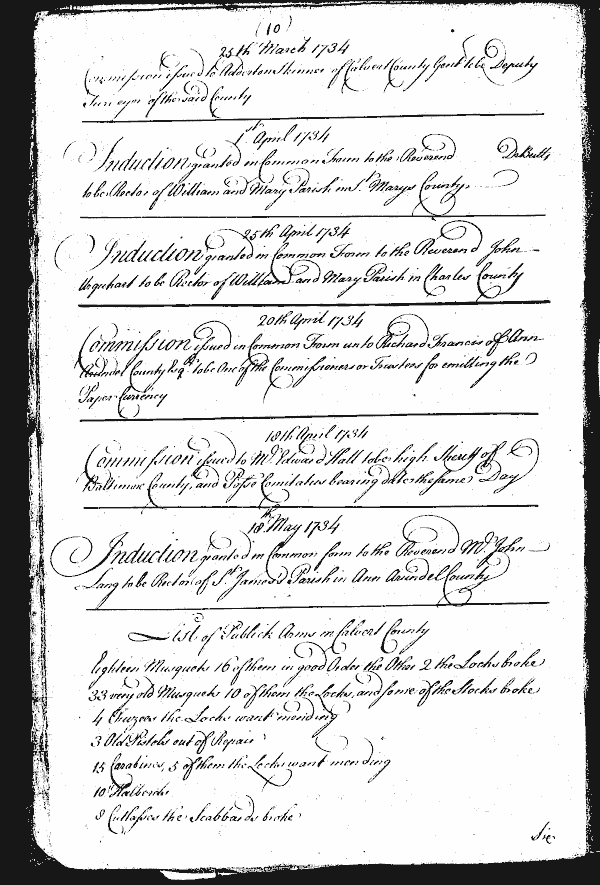 (10)
25th March 1734
Commission issued to Adderton Skinner of Calvert County Gent to be Deputy
Surveyor of the said County
1st April 1734
Induction granted in Common Form to the Reverend DeButts
to be Rector of William and Mary Parish in St Marys County.
25th April 1734
Induction granted in Common Form to the Reverend John
Urquhart to be Rector of William and Mary Parish in Charles County
20th April 1734
Commission issued in Common Form unto Richard Francis of Ann
Arundel County Esqr to be One of the Commissioners or Trustees for emitting the
Paper Currency
18th April 1734
Commission issued to Mr Edward Hall to be high Sheriff of
Baltimore County, and Posse Comitatus bearing date the same Day
18th May 1734
Induction granted in Common form to the Reverend Mr John
Lang to be Rector of St James's Parish in Ann Arundel County
List of Publick Arms in Calvert County
Eighteen Musquets 16 of them in good Order the Other 2 the Locks broke
33 very old Musquets 10 of them the Locks, and some of the Stocks broke
4 the Locks want mending
3 Old Pistols out of Repair
15 Carabines, 5 of them the Locks want mending
10 Halberds
8 Cutlasses the Scabbards broke
Six